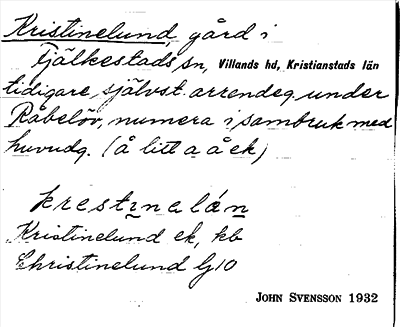 Kristinelund, gård i
Fjälkestads sn, Villands hd, Kristianstads län
tidigare självst. arrendeg. under
Råbelöv, numera i sambruk med
huvudg. (å litt a å ek)
krestɩnalán
Kristinelund ek, kb
Christinelund Gj10
JOHN SVENSSON 1932